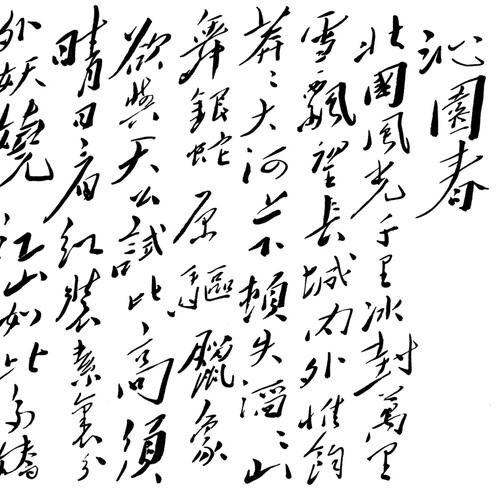 沁園春
北國風光千里冰封萬里
雪飄望長城内外惟餘
莽〻大河上下頓失滔〻山
舞銀蛇原驅臘象
欲與天公試比高須
晴日看紅裝素裹分
外妖嬈江山如此多嬌